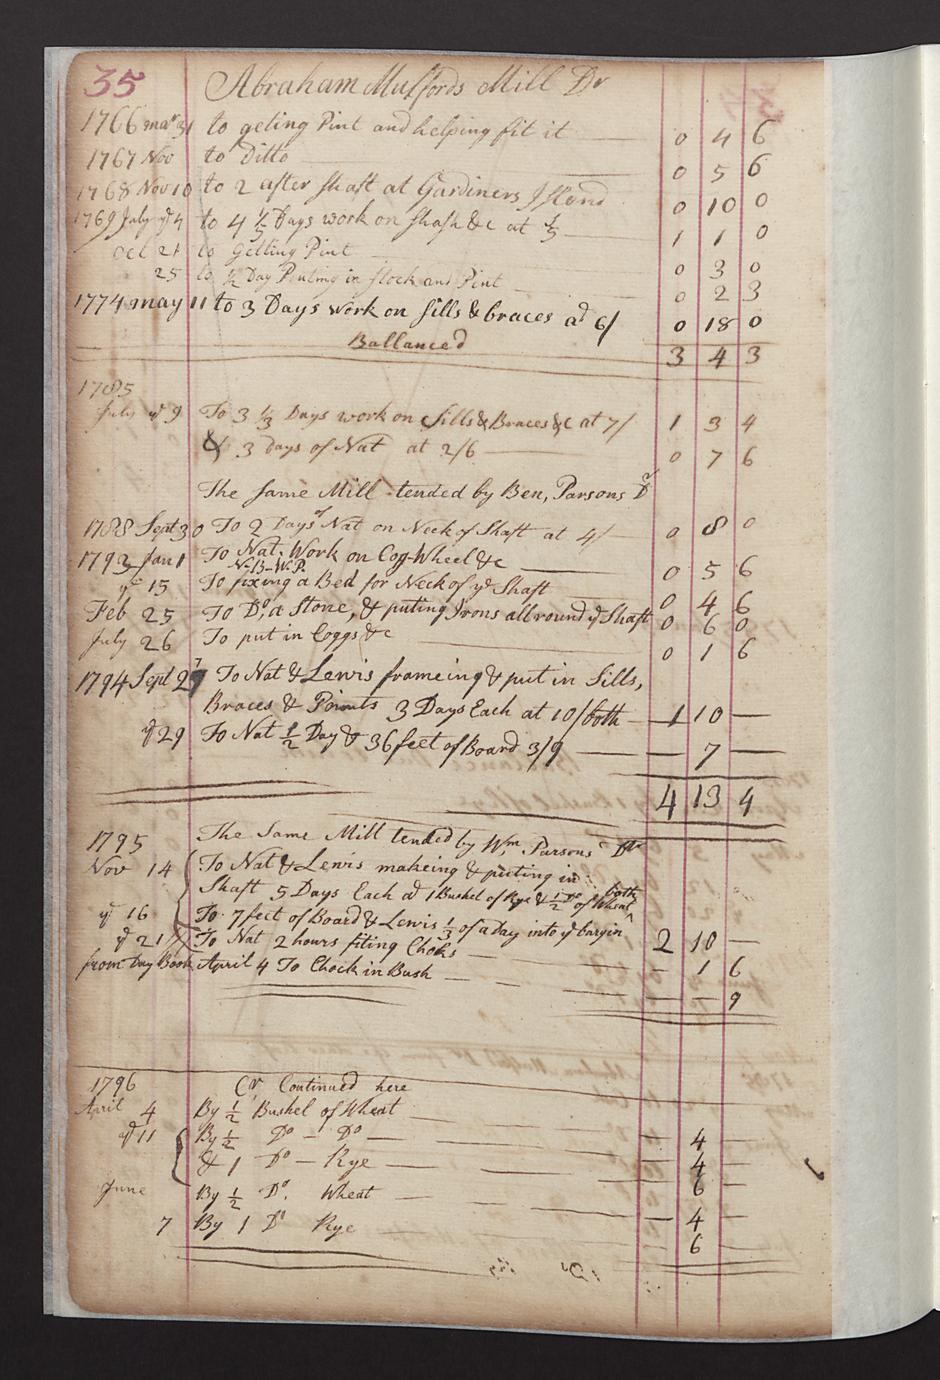 35 Abraham Mulfords Mill Dr
1766 mar 31 to geting Pint and helping fit it 0 4 6
1767 Nov to Ditto 0 5 6
1768 Nov 10 to 2 after shaft at Gardiners Island 0 10 0
1769 July ye 4 to 4 1/5 Days work on shaft &c at 5 1 1 0
Oct 21 to Getting Pint 0 3 0
25 to 1/2 Day Puting in stock and Pint 0 2 3
1774 may 11 to 3 Days work on sills & braces ad 6/ 0 18 0
Ballanced 3 4 3
1785
July ye 9 To 3 1/3 Days work on Sills & Braces &c at 7/ 1 3 4
& 3 days of Nat at 2/6 0 7 6
The Same Mill tended by Ben, Parsons Dr
1788 Sept 30 To 2 Days of Nat on Neck of Shaft at 4/ 0 8 0
1792 Jan 1 To Nat. Work on Cog-Wheel &c 0 5 6
N-B-W.P.
ye 15 To fixing a Bed for Neck of ye Shaft 0 4 6
Feb 25 To Do, a Stone, & puting Irons all round ye Shaft 0 6 0
July 26 To put in Coggs &c 0 1 6
1794 Sept 27 To Nat & Lewis frameing & put in Sills,
Braces & Points 3 Days Each at 10/ both 1 10 —
ye 29 To Nat 1/2 Day & 36 feet of Board 3/9 — 7 —
4 13 4
1795 The Same Mill tended by Wm Parsons Dr
Nov 14 To Nat & Lewis makeing & puting in
Shaft 5 Days Each ad 1 Bushel of Rye & 1/2 Do of Wheat both
ye 16 To 7 feet of Board & Lewis 1/3 of a day into ye bargin 2 10 —
ye 21 To Nat 2 hours fiting Chocks — 1 6
from Day Book April 4 To Chock in Bush — — 9
1796 Cr Continued here
April 4 By 1/2 Bushel of Wheat — 4 —
ye 11 By 1/2 Do — Do — 4 —
& 1 Do — Rye — 6 —
June By 1/2 Do. Wheat — 4 —
7 By 1 Do Rye — 6 —